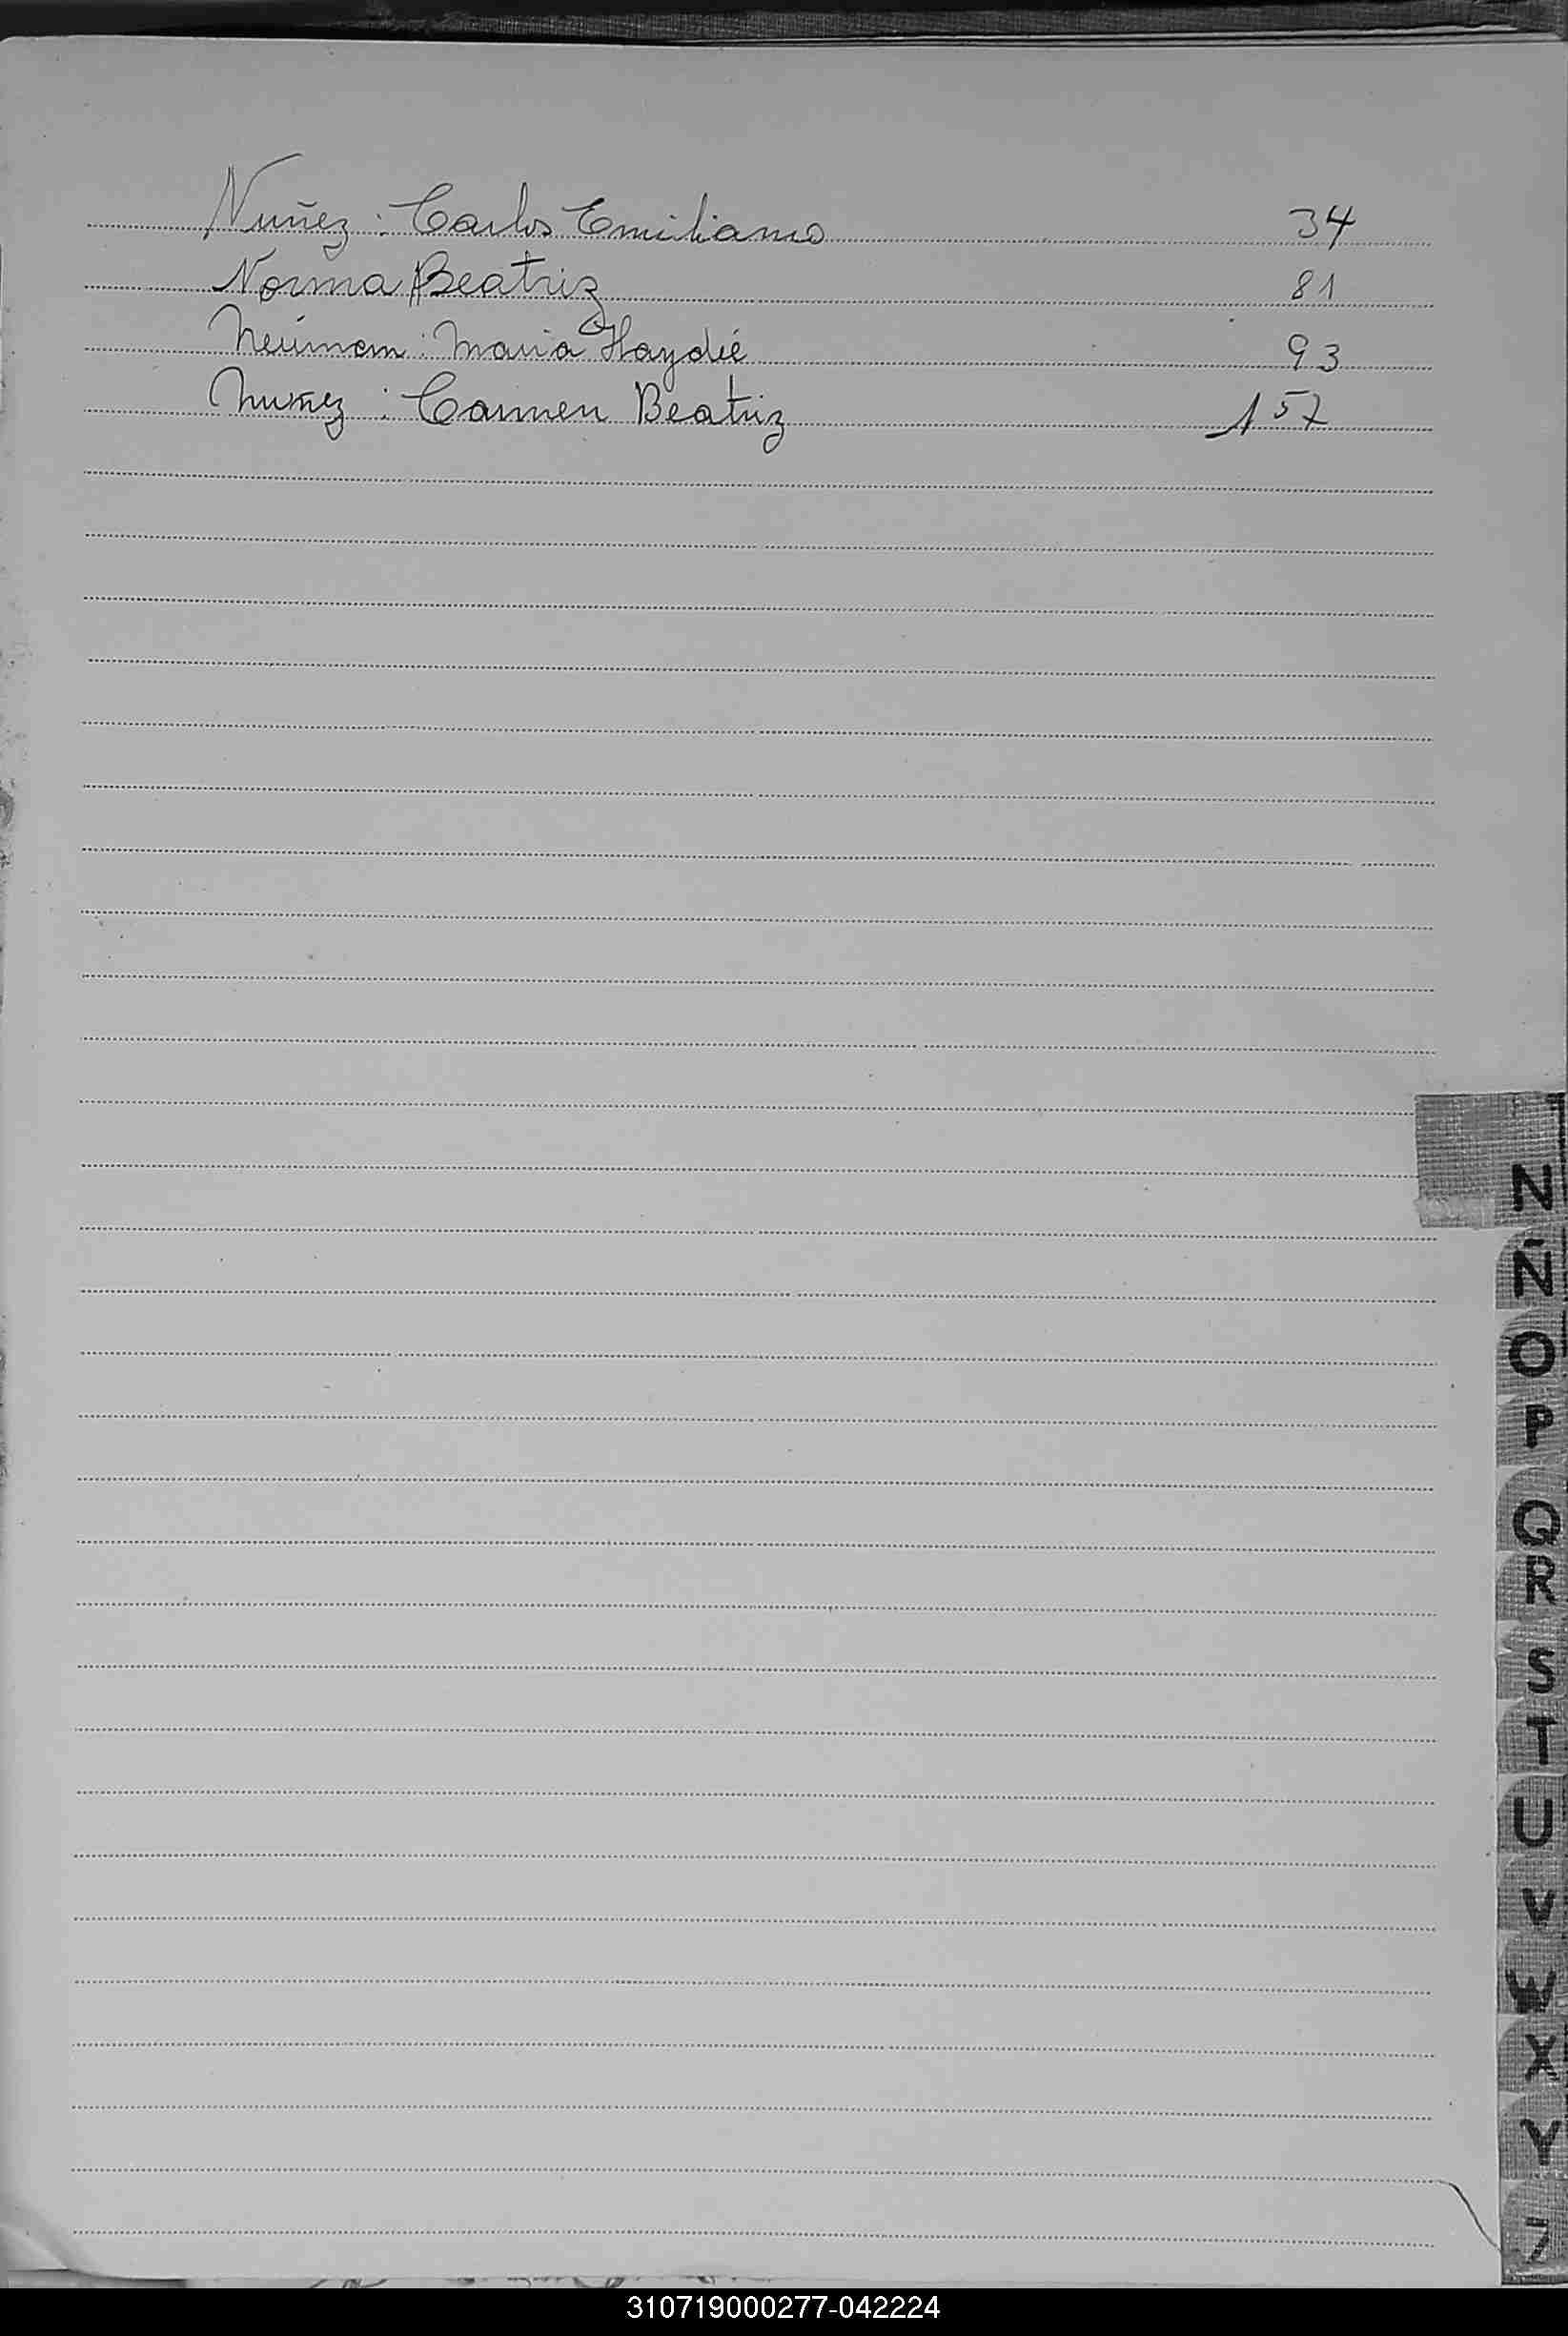 Nuñez : Carlos Emiliano 34
Norma Beatriz 81
Neúmem : Maria Haydée 93
Nuñez : Carmen Beatriz 157
N
Ñ
O
P
Q
R
S
T
U
V
W
X
Y
Z
310719000277-042224